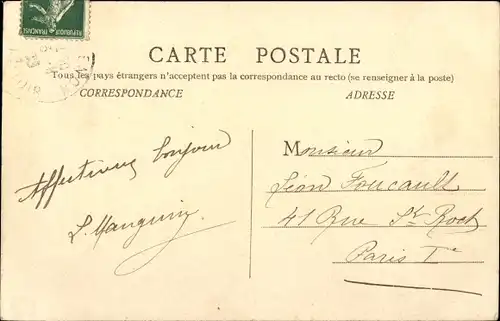 REPUBLIQUE FRANÇAISE
CARTE POSTALE
Tous les pays étrangers n'acceptent pas la correspondance au recto (se renseigner à la poste)
CORRESPONDANCE
ADRESSE
Affectueux bonjour
L. Manguin
Monsieur
Léon Foucault
41 Rue St. Roch
Paris 1er